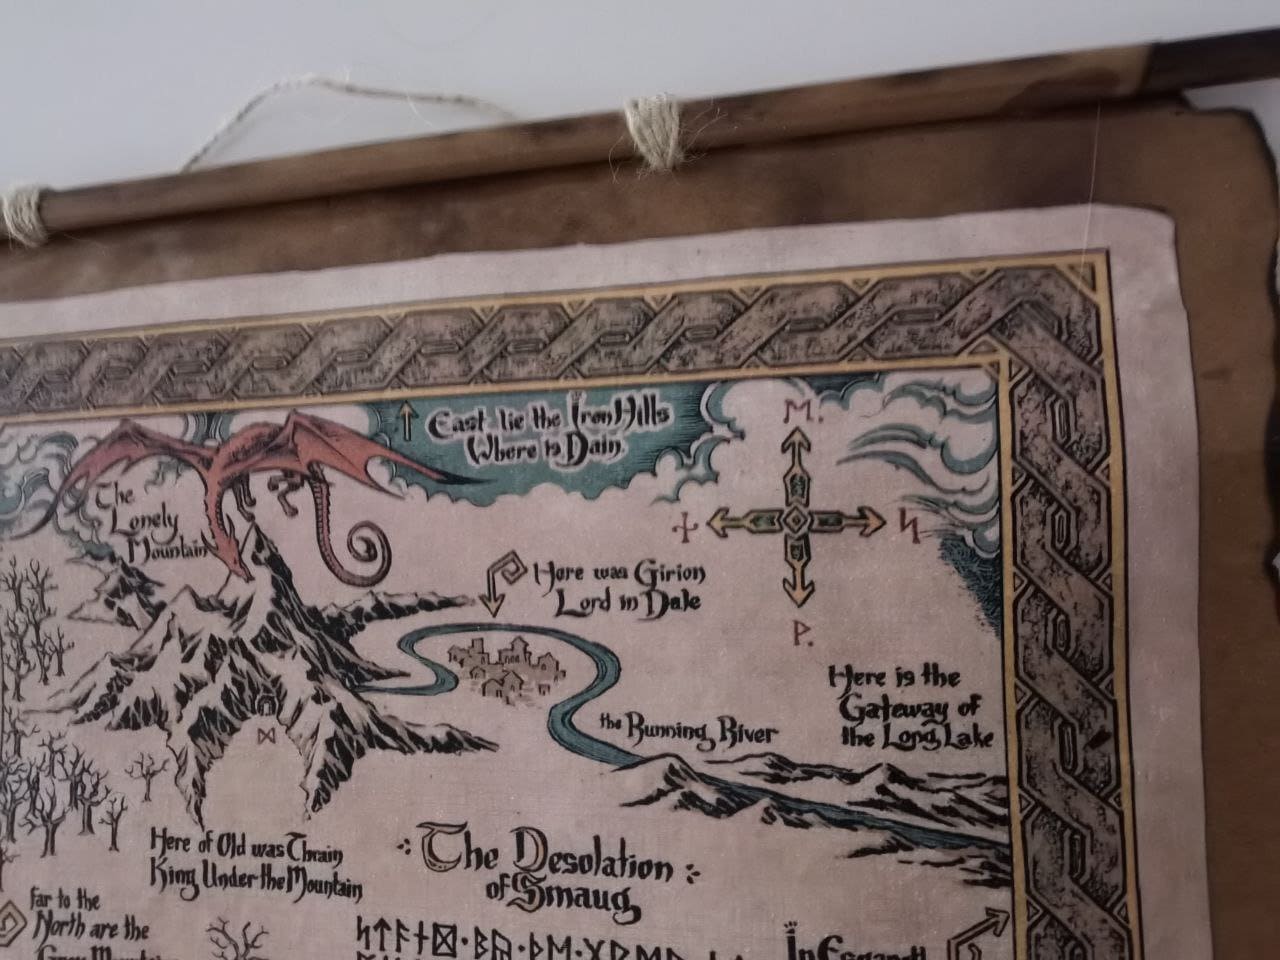 East lie the Iron Hills
Where is Dain.
ᛖ.
ᛋ
ᛈ.
The
Lonely
Mountain
Here was Girion
Lord in Dale
Here is the
Gateway of
the Long Lake
the Running River
ᛞ
Here of Old was Thrain
King Under the Mountain
The Desolation
of Smaug
Far to the
North are the
ᛋᛏᚪᚾᛞ·ᛒᚣ·ᚦᛖ·ᚷᚱᛖᚣ
In Esgaroth